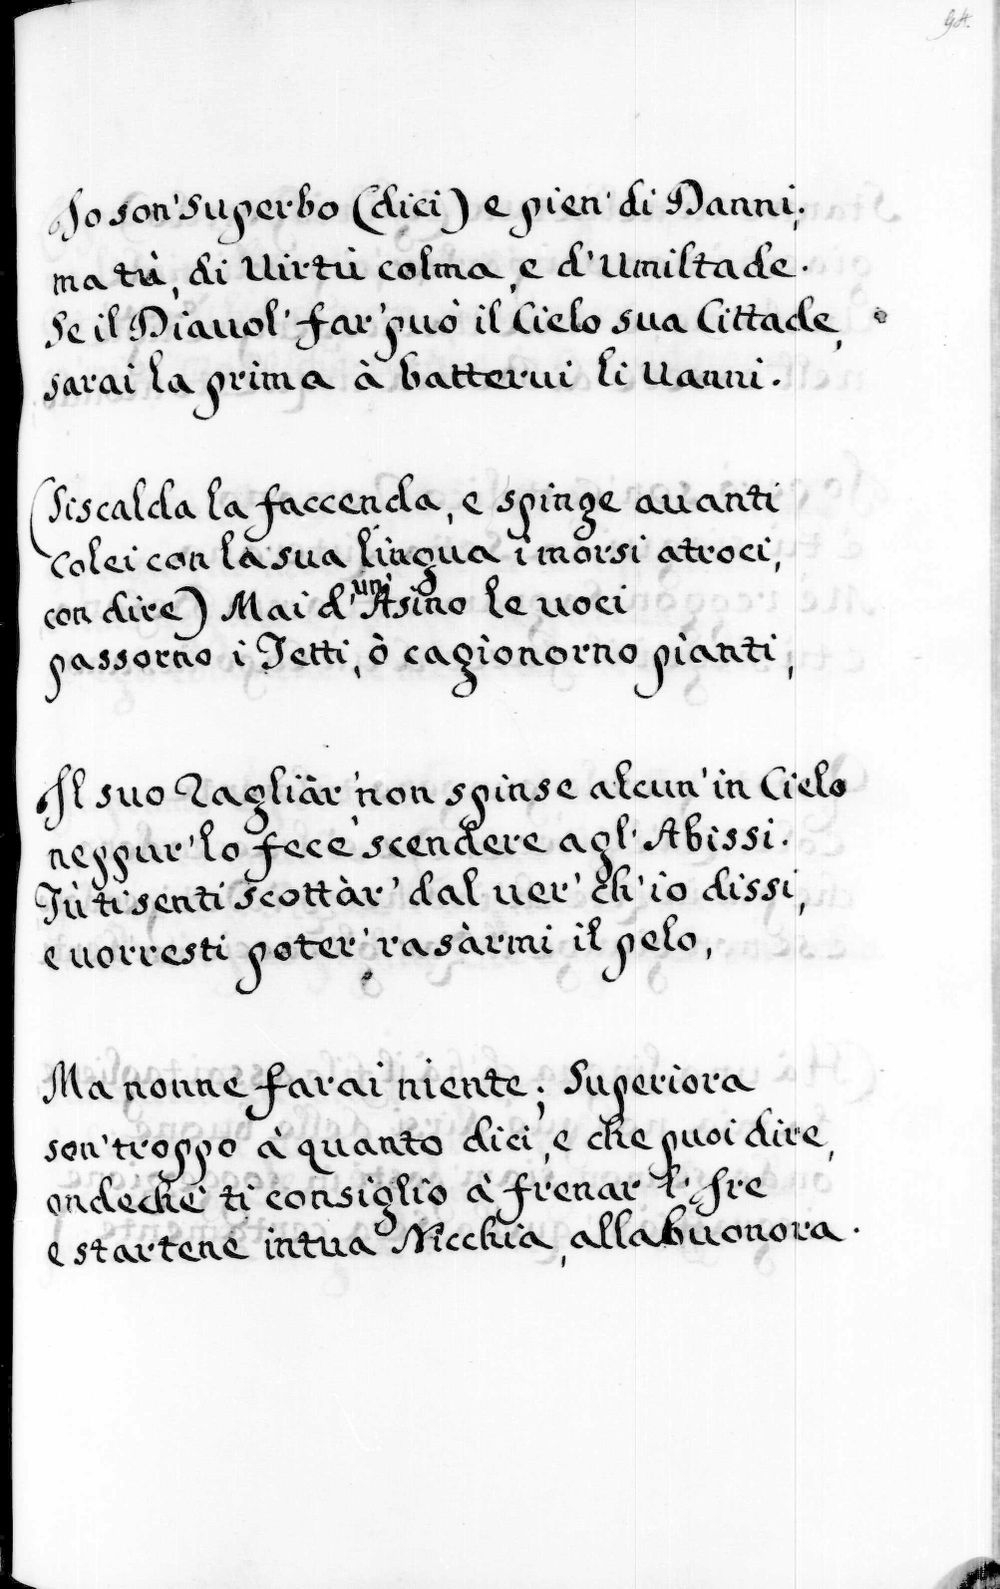 94.
Io son' Superbo (dici) e pien' di Danni;
ma tù, di Uirtù colma, e d'Umiltade.
Se il Diauol' far' può il Cielo sua Cittade,
sarai la prima à batterui li Uanni.
(Siscalda la faccenda, e spinge auanti
Colei con la sua lingua i morsi atroci,
con dire) Mai d'un' Asino le uoci
passorno i Tetti, ò cagionorno pianti,
Il suo Ragliàr' non spinse alcun' in Cielo
neppur' lo fece scendere agl' Abissi.
Tù ti senti scottàr' dal uer' ch' io dissi,
e uorresti poter' rasàrmi il pelo,
Ma nonne farai niente; Superiora
son' troppo à quanto dici, e che puoi dire,
ondeche ti consiglio à frenar l' Ire
e startene in tua Nicchia, alla buonora.